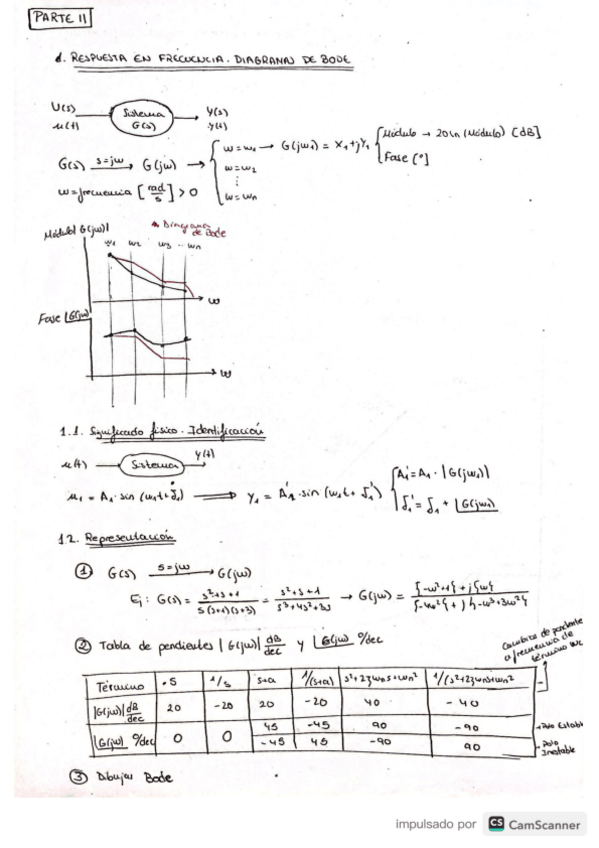 PARTE II
1. RESPUESTA EN FRECUENCIA. DIAGRAMAS DE BODE
U(s)
u(t)
Sistema
G(s)
Y(s)
y(t)
G(s) s=jω → G(jω) →
ω = ω1 → G(jω1) = X1 + jY1
Módulo → 20 ln (Módulo) [dB]
Fase [°]
ω = ω2
⋮
ω = ωn
ω = frecuencia [rad/s] > 0
* Diagrama de Bode
Módulo |G(jω)|
ω1 ω2 ω3 ... ωn
ω
Fase ∠G(jω)
ω
1.1. Significado físico. Identificación
u(t) → Sistema → y(t)
u1 = A1 · sin (ω1t + δ1) ⟹ y1 = A1' · sin (ω1t + δ1')
A1' = A1 · |G(jω1)|
δ1' = δ1 + ∠G(jω1)
1.2. Representación
① G(s) s=jω → G(jω)
Ej: G(s) = s²+s+1 / s(s+1)(s+3) = s²+s+1 / s³+4s²+3s → G(jω) = {-ω²+1} + j{ω} / {-4ω²} + j{-ω³+3ω}
② Tabla de pendientes |G(jω)| dB/dec y ∠G(jω) °/dec
Cambios de pendiente
a frecuencia de
término ωc
Término · s 1/s s+a 1/(s+a) s²+2ζωns+ωn² 1/(s²+2ζωns+ωn²)
|G(jω)| dB/dec 20 -20 20 -20 40 -40
∠G(jω) °/dec 0 0 45 -45 90 -90 → Polo Estable
-45 45 -90 90 → Polo Inestable
③ Dibujar Bode
impulsado por CS CamScanner